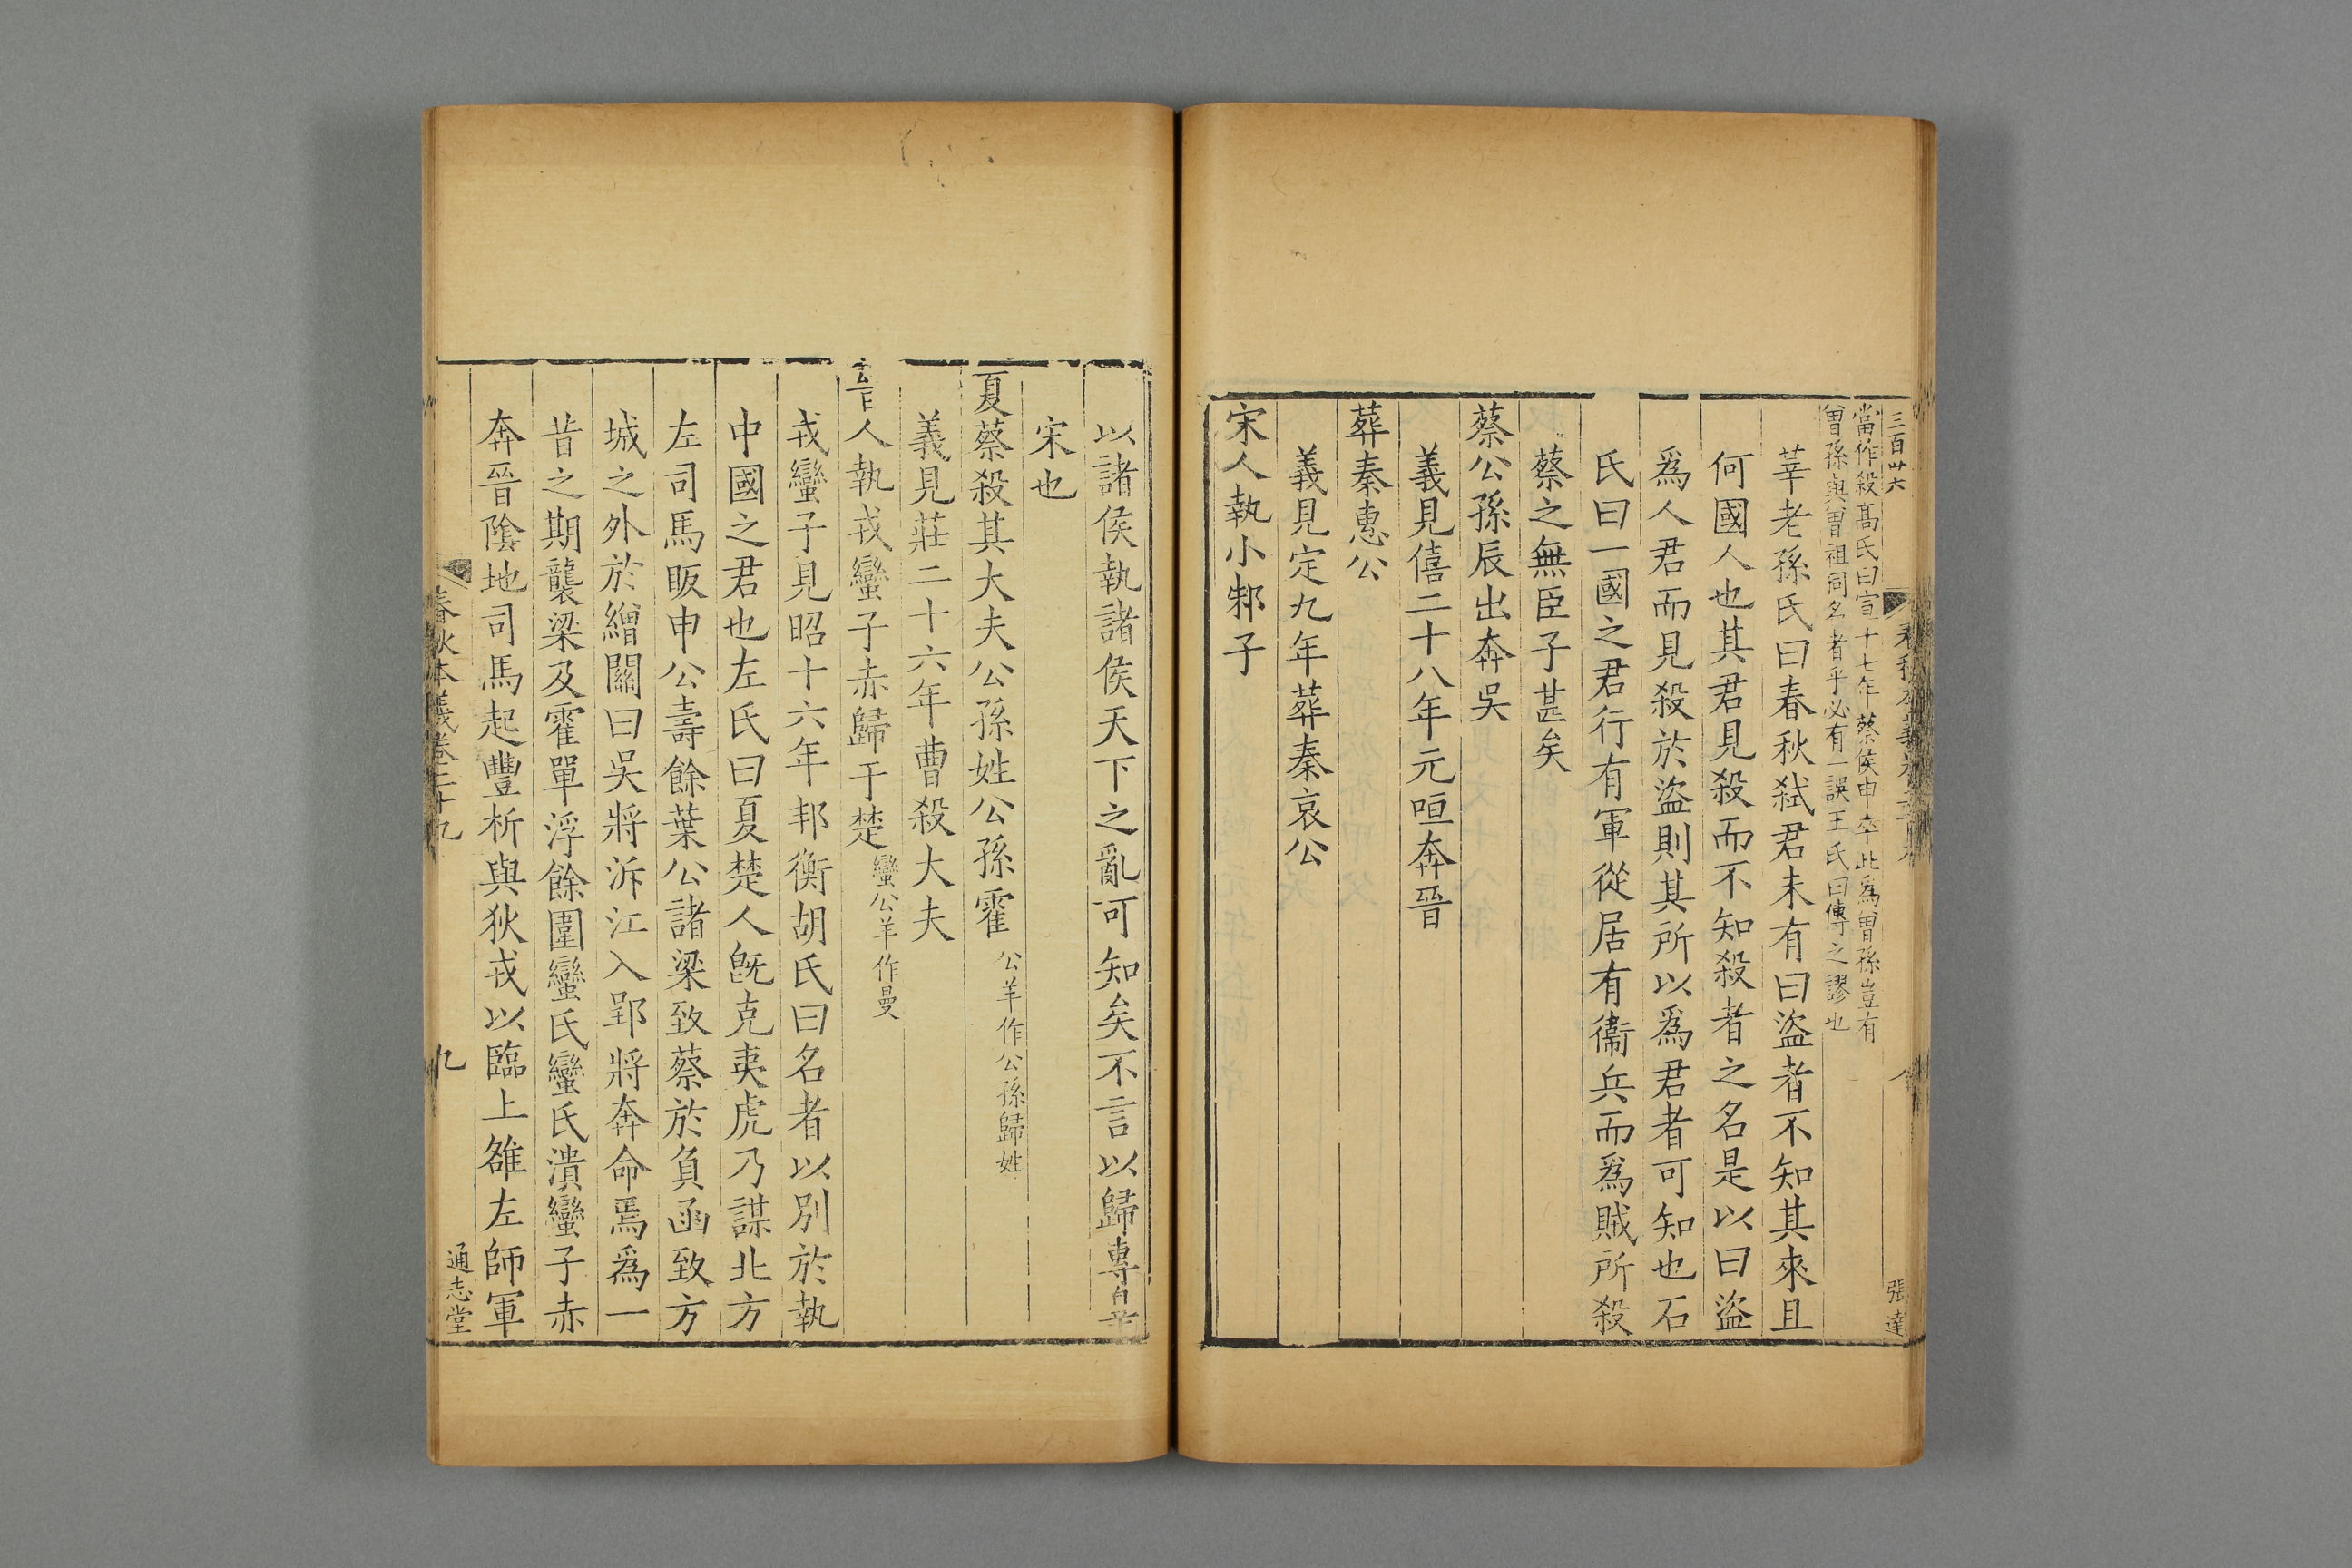 三百卅六
張達
當作殺髙氏曰宣十七年蔡侯申卒此爲曽孫豈有
曽孫與曽祖同名者乎必有一誤王氏曰傳之謬也
莘老孫氏曰春秋弑君未有曰盜者不知其來且
何國人也其君見殺而不知殺者之名是以曰盜
爲人君而見殺於盜則其所以爲君者可知也石
氏曰一國之君行有軍從居有衞兵而爲賊所殺
蔡之無臣子甚矣
蔡公孫辰出奔吳
義見僖二十八年元咺奔晉
葬秦惠公
義見定九年葬秦哀公
宋人執小邾子
以諸侯執諸侯天下之亂可知矣不言以歸專自
宋也
夏蔡殺其大夫公孫姓公孫霍
公羊作公孫歸姓
義見莊二十六年曹殺大夫
晉人執戎蠻子赤歸于楚
蠻公羊作曼
戎蠻子見昭十六年邦衡胡氏曰名者以別於執
中國之君也左氏曰夏楚人旣克夷虎乃謀北方
左司馬眅申公壽餘葉公諸梁致蔡於負函致方
城之外於繒關曰吳將泝江入郢將奔命焉爲一
昔之期襲梁及霍單浮餘圍蠻氏蠻氏潰蠻子赤
奔晉隂地司馬起豐析與狄戎以臨上雒左師軍
春秋本義卷二十九
九
通志堂